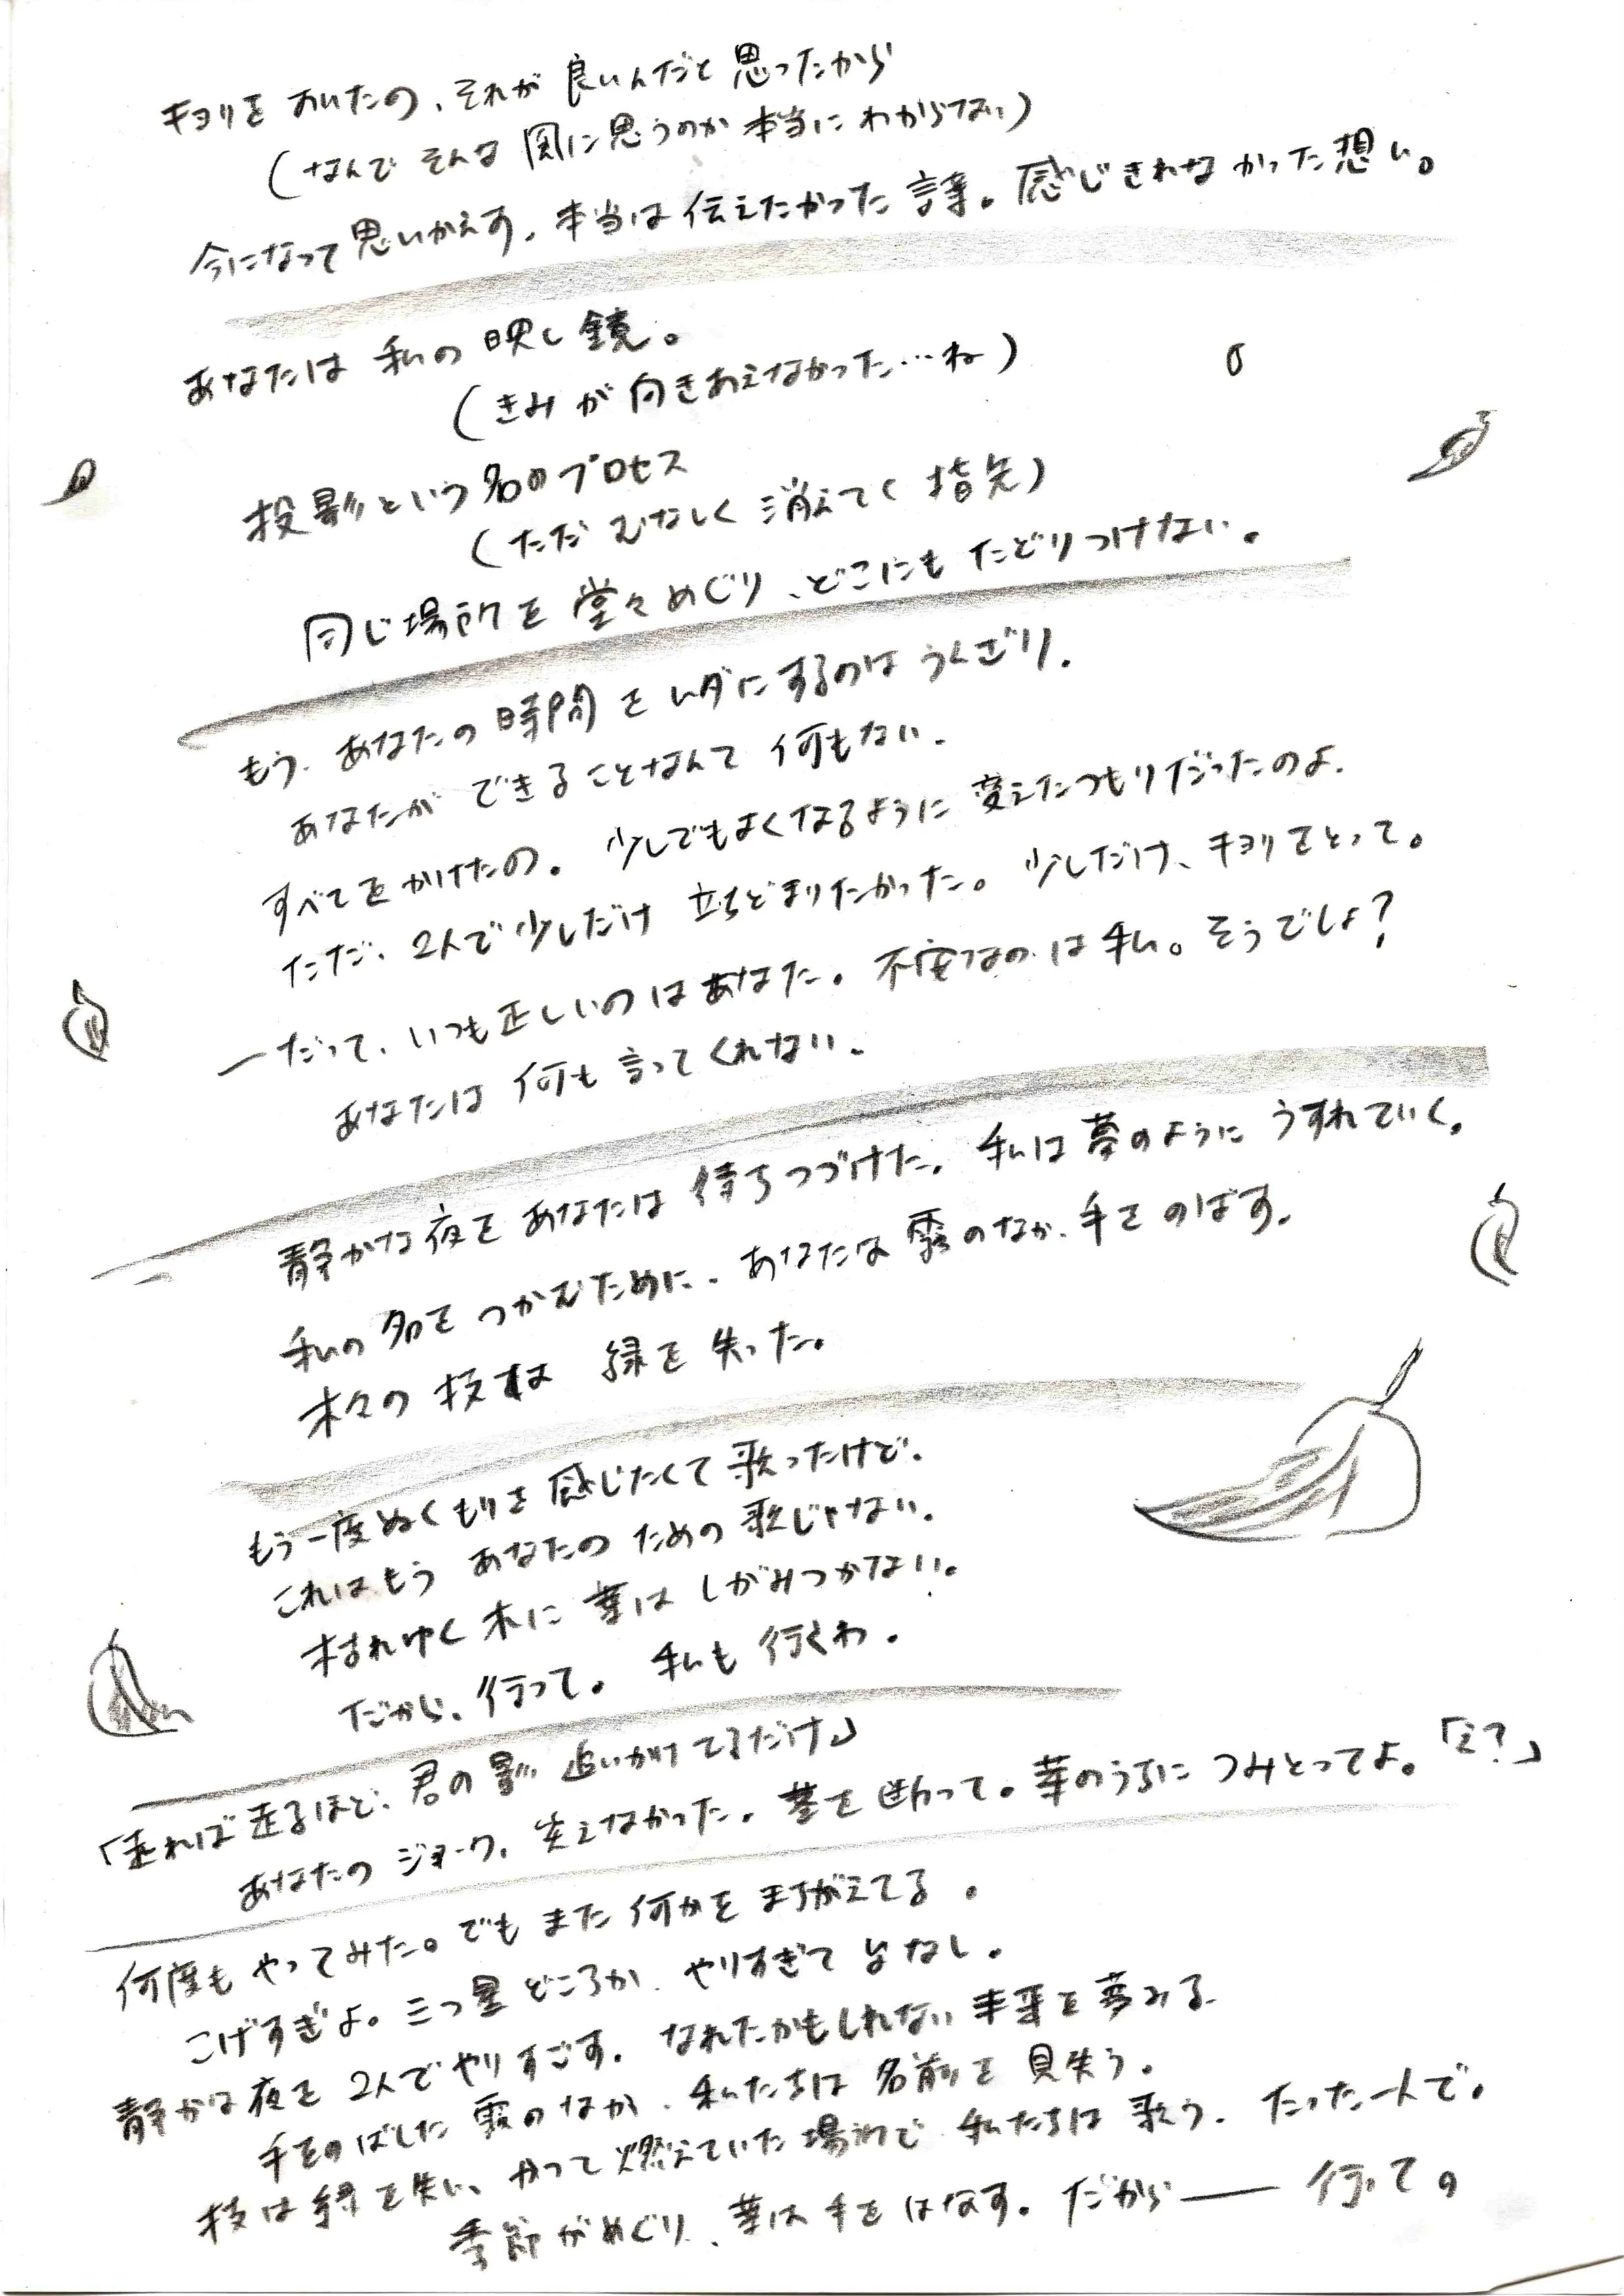 キョリを おいたの、それが 良いんだと 思ったから
(なんで そんな 風に思うのか 本当に わからない)
今になって思いかえす、本当は伝えたかった 言葉。感じきれなかった想い。
あなたは 私の 映し鏡。
(きみが向きあえなかった…ね)
投影という名のプロセス
(ただ むなしく 消えてく 指先)
同じ場所を 堂々めぐり、どこにも たどりつけない。
もう、あなたの時間を ムダにするのは うんざり。
あなたが できることなんて 何もない。
すべてをかけたの。少しでもよくなるように 変えたつもりだったのよ。
ただ、2人で少しだけ 立ちどまりたかった。少しだけ、キョリをとって。
―だって、いつも正しいのはあなた。不安なのは私。そうでしょ?
あなたは 何も 言ってくれない。
静かな夜を あなたは 待ちつづけた。私は夢のように うすれていく。
私の名を つかむために、あなたは 霧のなか、手を のばす。
木々の 枝は 緑を 失った。
もう一度ぬくもりを 感じたくて 歌ったけど、
これはもう あなたの ための 歌じゃない。
枯れゆく 木に 葉は しがみつかない。
だから、行って。 私も 行くわ。
「走れば走るほど、君の影 追いかけてるだけ」
あなたの ジョーク、笑えなかった。茎を断って。芽のうちに つみとってよ。「え?」
何度も やってみた。でも また 何かを まちがえてる。
こげすぎよ。三つ星 どころか、やりすぎて 星なし。
静かな夜を 2人でやりすごす。なれたかもしれない 未来を 夢みる
手をのばした 霧のなか、私たちは 名前を 見失う。
枝は 緑を 失い、かつて 燃えていた 場所で 私たちは 歌う、たった一人で。
季節がめぐり、葉は 手を はなす。だから ―― 行って。